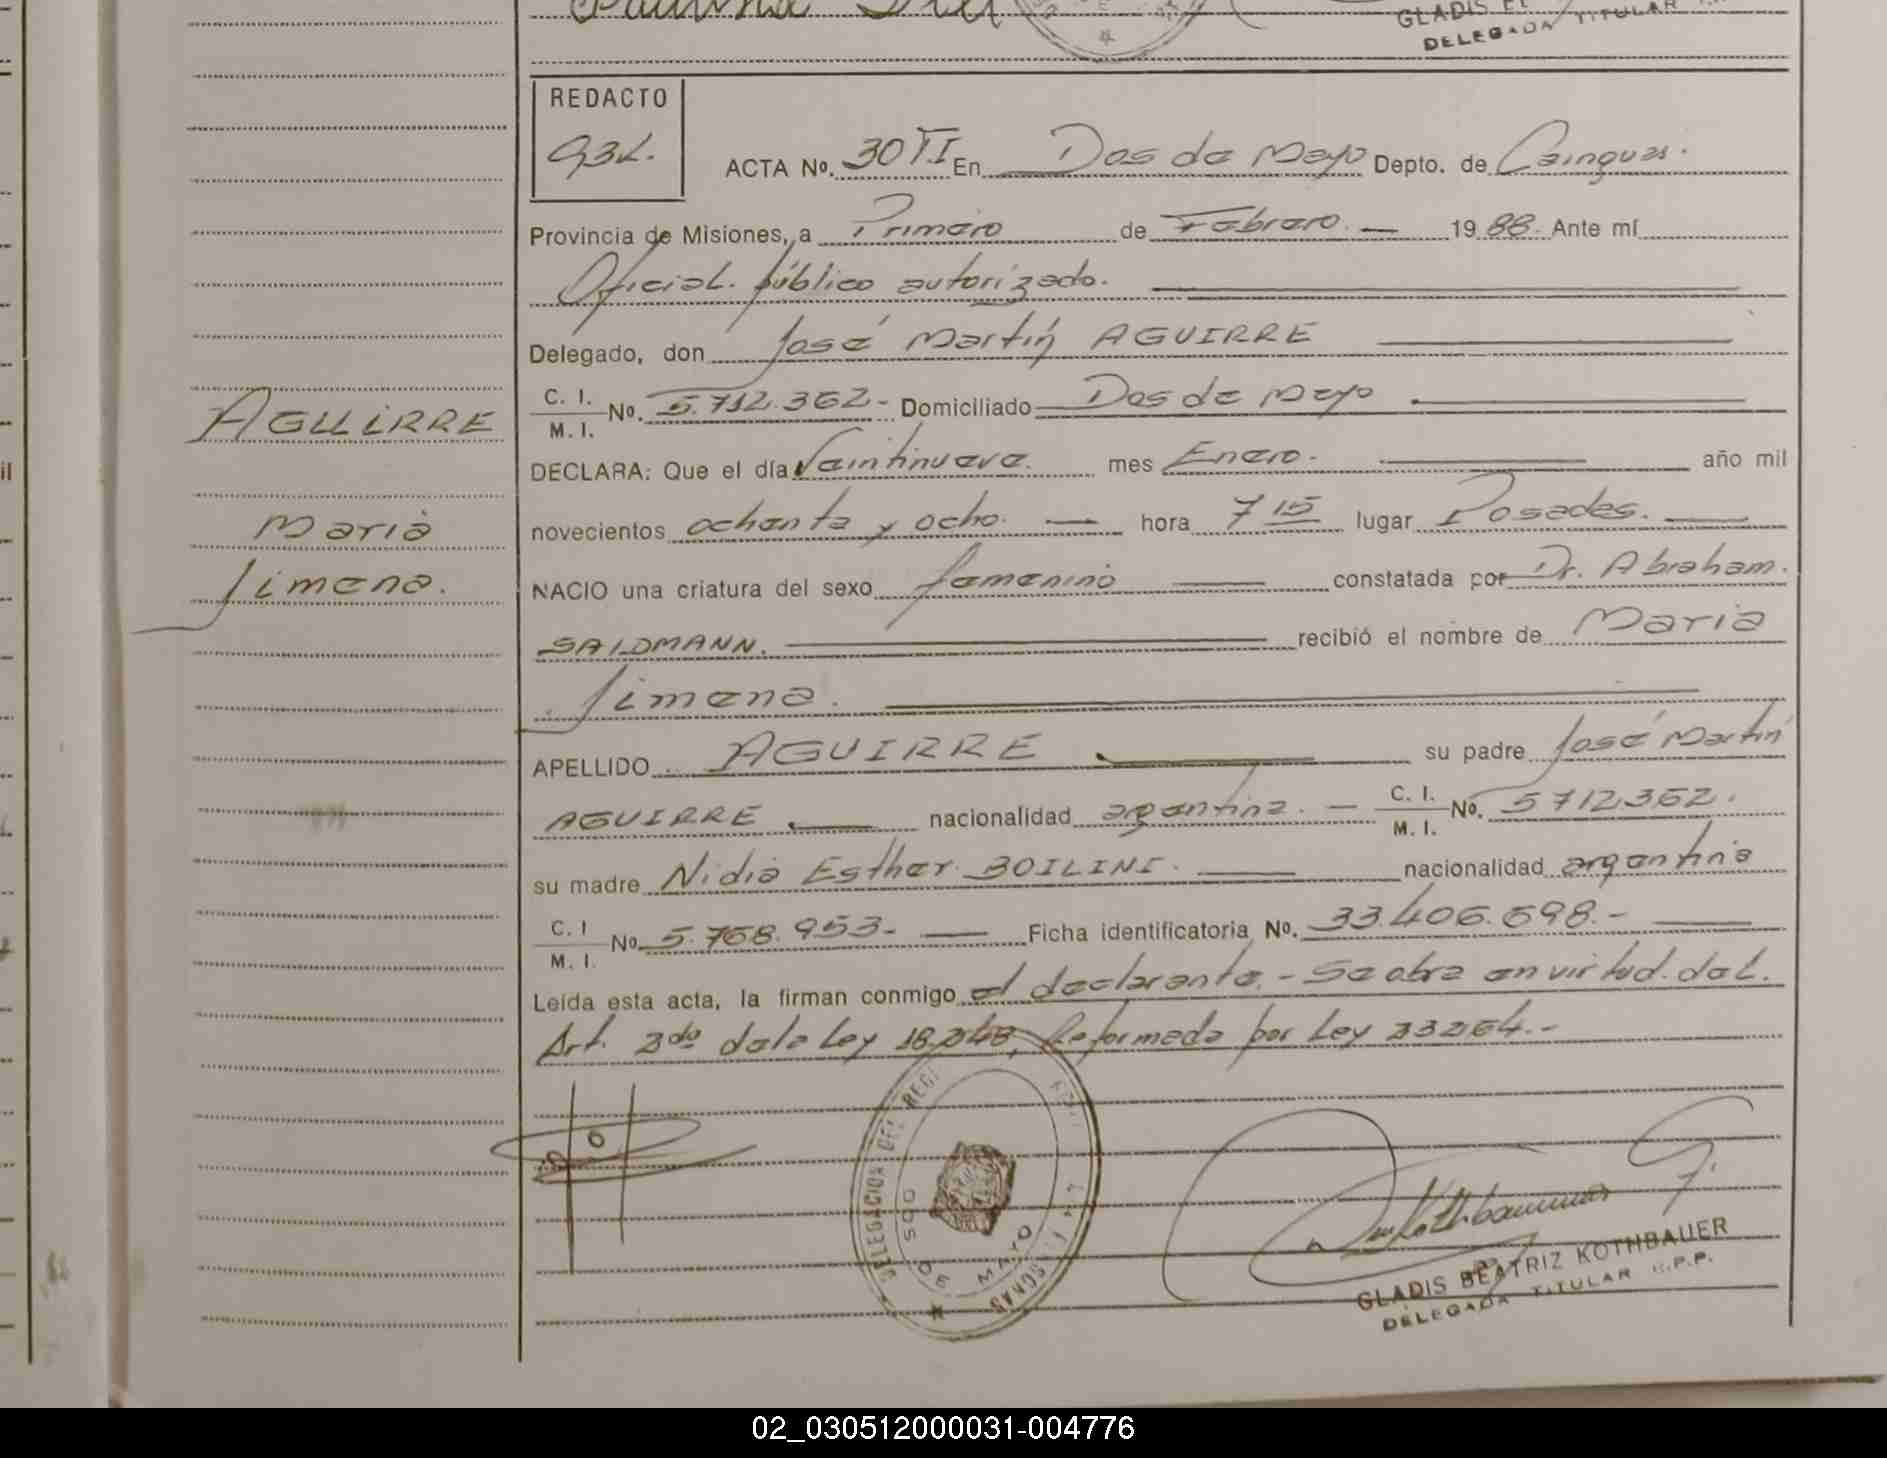 GLADIS
DELEGADA TITULAR
REDACTO
ACTA No. 30 T.I En Dos de Mayo Depto. de Cainguas.
Provincia de Misiones, a Primero de Febrero. — 1988. Ante mí
Oficial público autorizado.
Delegado, don José Martín AGUIRRE
C. I.
M. I. No. 5.712.362- Domiciliado Dos de Mayo
AGUIRRE
DECLARA: Que el día Veintinueve. mes Enero. año mil
novecientos ochenta y ocho. — hora 7 15 lugar Posadas.
María
Jimena.
NACIO una criatura del sexo femenino constatada por Dr. Abraham.
SALDMANN. recibió el nombre de María
Jimena.
APELLIDO AGUIRRE su padre José Martín
AGUIRRE nacionalidad argentina. — C. I.
M. I. No. 5712362.
su madre Nidia Esther BOILINI. nacionalidad argentina
C. I
M. I. No 5.768.953- Ficha identificatoria No. 33.406.698.-
Leída esta acta, la firman conmigo el declarante.- Se abre en virtud del.
Art. 2do de la Ley 18.248, Reformada por Ley 23264.-
DELEGACION DEL REGI
DOS DE MAYO
GLADIS BEATRIZ KOTHBAUER
DELEGADA TITULAR R.P.P.
02_030512000031-004776